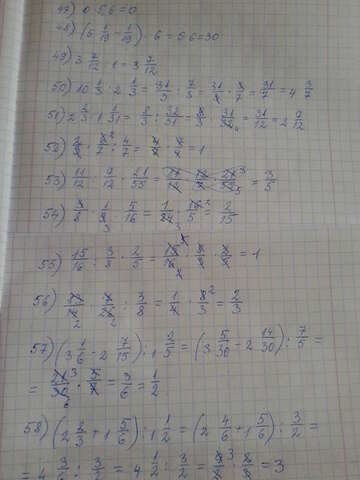 47) 0·5,6=0
48) (5 1/19 - 1/19) · 6 = 5·6=30
49) 3 7/12 · 1 = 3 7/12
50) 10 1/3 : 2 1/3 = 31/3 : 7/3 = 31/3 · 3/7 = 31/7 = 4 3/7
51) 2 2/3 : 1 1/31 = 8/3 : 32/31 = 8/3 · 31/32 4 = 31/12 = 2 7/12
52) 2/2 · 8/7 : 4/7 = 4/7 · 7/4 = 1
53) 11/12 : 9/12 · 21/55 = 11/12 · 12/9 · 21 3/55 5 = 3/5
54) 3/8 · 1/9 : 5/16 = 1/24 · 16 2/5 = 2/15
55) 15/16 : 3/8 · 2/5 = 15/16 · 8/3 · 2/5 = 1
56) 2 2 : 3/8 = 1/4 · 8 2/3 = 2/3
57) (3 1/6 - 2 7/15) : 1 2/5 = (3 5/30 - 2 14/30) : 7/5 =
= 21 3/30 6 · 5/7 = 3/6 = 1/2
58) (2 2/3 + 1 5/6) : 1 1/2 = (2 4/6 + 1 5/6) : 3/2 =
= 4 3/6 : 3/2 = 4 1/2 : 3/2 = 9 3/2 · 2/3 = 3